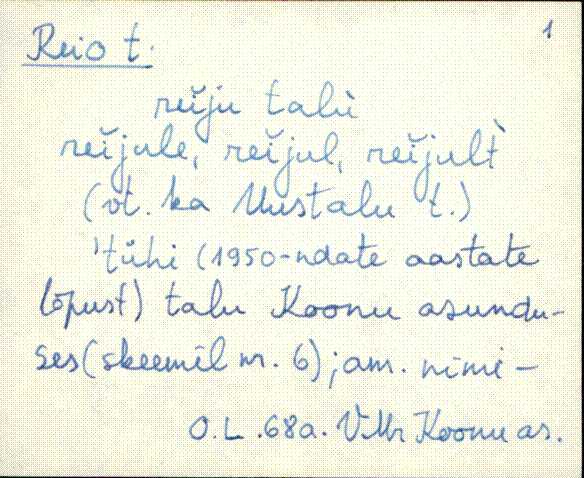 1
Reio t.
reĭju talù
reĭjule, reĭjul, reĭjult̀
(vt. ka Uustalu t.)
'tühi (1950-ndate aastate
lõpust) talu Koonu asundu-
ses (skeemil nr. 6); am. nimi –
O.L. 68a. VMr Koonu as.